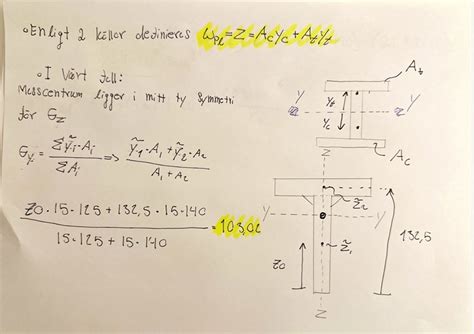 •Enligt 2 källor definieras W_PL = Z = A_c y_c + A_t y_t
•I Vårt fall:
Masscentrum ligger i mitt ty symmetri
för G_z
G_y = ΣỹᵢAᵢ / ΣAᵢ => (ỹ₁·A₁ + ỹ₂·A₂) / (A₁ + A₂)
(70·15·125 + 132,5·15·140) / (15·125 + 15·140) = 103,02
A_t
y_t
y_c
y
y
A_c
Z
Z
y
y
z̃₂
z̃₁
70
132,5
Z